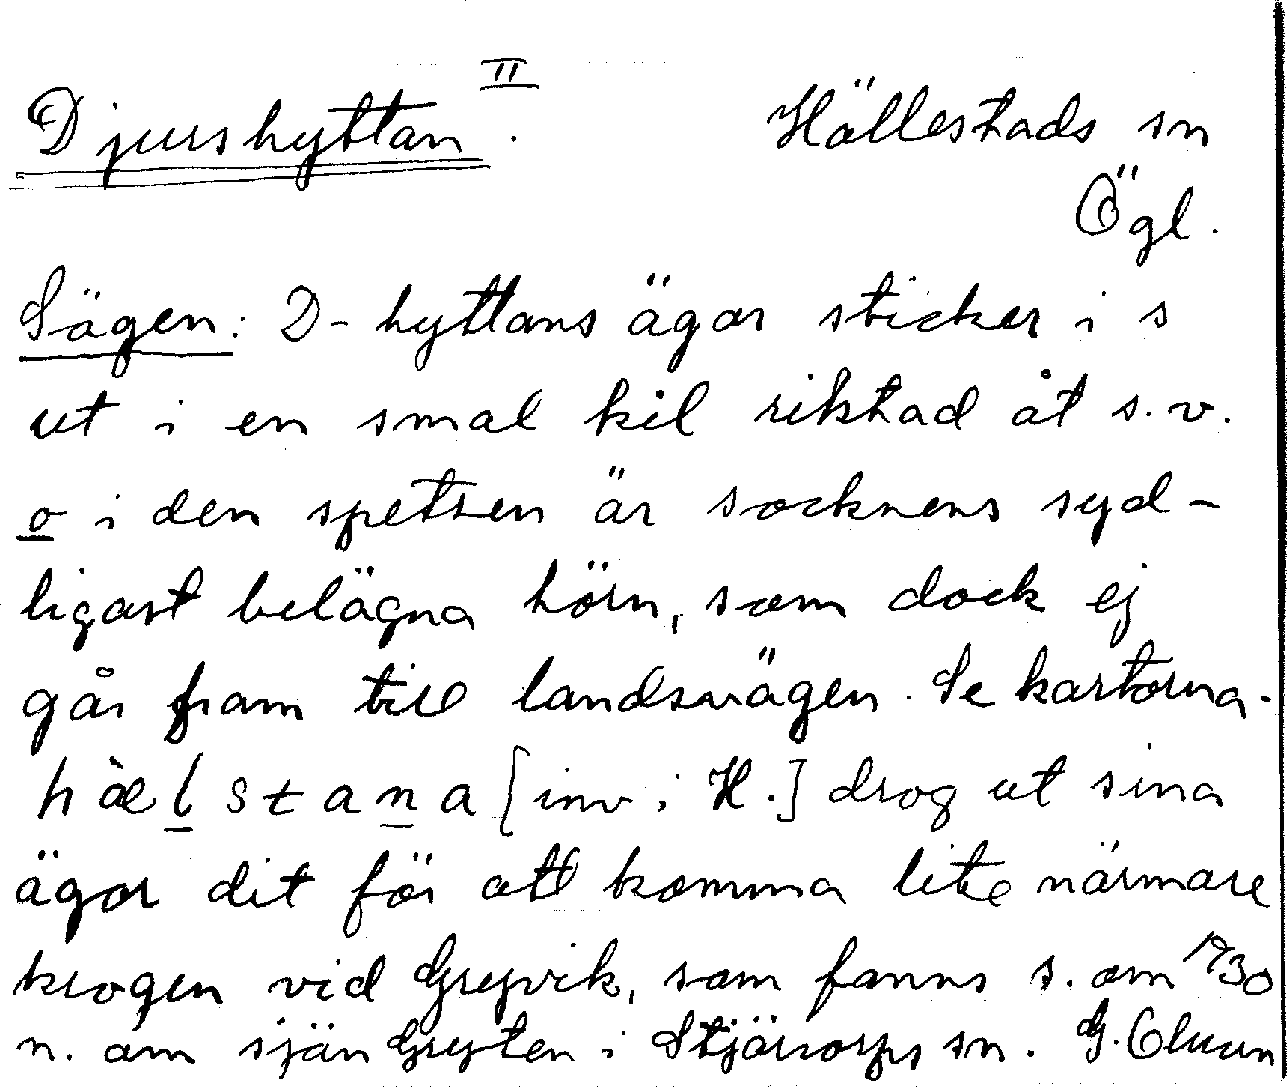 Djurshyttan II. Hällestads sn
Ögl.
Sägen: D-hyttans ägor sticker i s
ut i en smal kil riktad åt s.v.
o i den spetsen är socknens syd-
ligast belägna hörn, som dock ej
går fram till landsvägen. Se kartorna.
hælstana [inv i H.] drog ut sina
ägor dit för att komma lite närmare
krogen vid Grytvik, som fanns s. om
n. om sjön Gryten i Stjärnorps sn. G. Clasen 1930